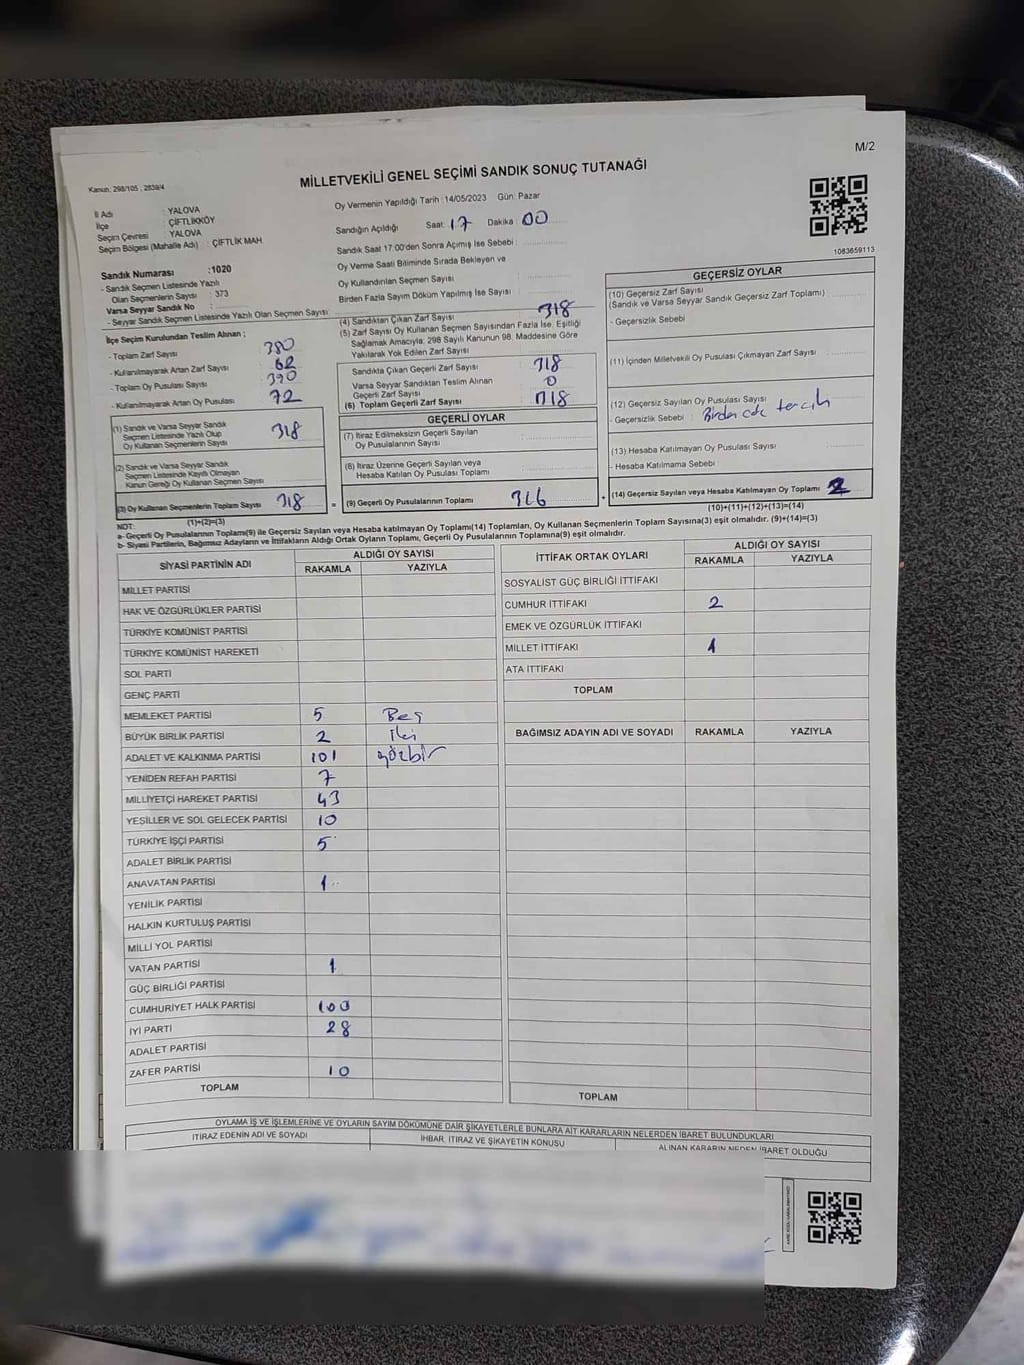 M/2
MİLLETVEKİLİ GENEL SEÇİMİ SANDIK SONUÇ TUTANAĞI
Kanun: 298/105 , 2839/4
İl Adı : YALOVA
İlçe : ÇİFTLİKKÖY
Seçim Çevresi : YALOVA
Seçim Bölgesi (Mahalle Adı) : ÇİFTLİK MAH
Oy Vermenin Yapıldığı Tarih : 14/05/2023 Gün: Pazar
Sandığın Açıldığı Saat: 17 Dakika : 00
Sandık Saat 17:00'den Sonra Açımış İse Sebebi :
Oy Verme Saati Bitiminde Sırada Bekleyen ve
Oy Kullandırılan Seçmen Sayısı :
Birden Fazla Sayım Döküm Yapılmış İse Sayısı :
1083659113
Sandık Numarası :1020
- Sandık Seçmen Listesinde Yazılı
Olan Seçmenlerin Sayısı : 373
Varsa Seyyar Sandık No :
- Seyyar Sandık Seçmen Listesinde Yazılı Olan Seçmen Sayısı :
İlçe Seçim Kurulundan Teslim Alınan ;
- Toplam Zarf Sayısı 380
- Kullanılmayarak Artan Zarf Sayısı 62
- Toplam Oy Pusulası Sayısı 390
- Kullanılmayarak Artan Oy Pusulası 72
(1) Sandık ve Varsa Seyyar Sandık
Seçmen Listesinde Yazılı Olup
Oy Kullanan Seçmenlerin Sayısı 318
(2) Sandık ve Varsa Seyyar Sandık
Seçmen Listesinde Kayıtlı Olmayan
Kanun Gereği Oy Kullanan Seçmen Sayısı
(3) Oy Kullanan Seçmenlerin Toplam Sayısı 318
(1)+(2)=(3)
(4) Sandıktan Çıkan Zarf Sayısı 318
(5) Zarf Sayısı Oy Kullanan Seçmen Sayısından Fazla İse, Eşitliği
Sağlamak Amacıyla; 298 Sayılı Kanunun 98. Maddesine Göre
Yakılarak Yok Edilen Zarf Sayısı
Sandıkta Çıkan Geçerli Zarf Sayısı 318
Varsa Seyyar Sandıktan Teslim Alınan
Geçerli Zarf Sayısı 0
(6) Toplam Geçerli Zarf Sayısı 318
GEÇERLİ OYLAR
(7) İtiraz Edilmeksizin Geçerli Sayılan
Oy Pusulalarının Sayısı :
(8) İtiraz Üzerine Geçerli Sayılan veya
Hesaba Katılan Oy Pusulası Toplamı :
= (9) Geçerli Oy Pusulalarının Toplamı 316
GEÇERSİZ OYLAR
(10) Geçersiz Zarf Sayısı
(Sandık ve Varsa Seyyar Sandık Geçersiz Zarf Toplamı) :
- Geçersizlik Sebebi
(11) İçinden Milletvekili Oy Pusulası Çıkmayan Zarf Sayısı :
(12) Geçersiz Sayılan Oy Pusulası Sayısı
- Geçersizlik Sebebi : Birden çok tercih
(13) Hesaba Katılmayan Oy Pusulası Sayısı
- Hesaba Katılmama Sebebi
+ (14) Geçersiz Sayılan veya Hesaba Katılmayan Oy Toplamı 2
(10)+(11)+(12)+(13)=(14)
NOT:
a- Geçerli Oy Pusulalarının Toplamı(9) ile Geçersiz Sayılan veya Hesaba katılmayan Oy Toplamı(14) Toplamları, Oy Kullanan Seçmenlerin Toplam Sayısına(3) eşit olmalıdır. (9)+(14)=(3)
b- Siyasi Partilerin, Bağımsız Adayların ve İttifakların Aldığı Ortak Oyların Toplamı, Geçerli Oy Pusulalarının Toplamına(9) eşit olmalıdır.
SİYASİ PARTİNİN ADI ALDIĞI OY SAYISI
RAKAMLA YAZIYLA
MİLLET PARTİSİ
HAK VE ÖZGÜRLÜKLER PARTİSİ
TÜRKİYE KOMÜNİST PARTİSİ
TÜRKİYE KOMÜNİST HAREKETİ
SOL PARTİ
GENÇ PARTİ
MEMLEKET PARTİSİ 5 Beş
BÜYÜK BİRLİK PARTİSİ 2 iki
ADALET VE KALKINMA PARTİSİ 101 yüzbir
YENİDEN REFAH PARTİSİ 7
MİLLİYETÇİ HAREKET PARTİSİ 43
YEŞİLLER VE SOL GELECEK PARTİSİ 10
TÜRKİYE İŞÇİ PARTİSİ 5
ADALET BİRLİK PARTİSİ
ANAVATAN PARTİSİ 1
YENİLİK PARTİSİ
HALKIN KURTULUŞ PARTİSİ
MİLLİ YOL PARTİSİ
VATAN PARTİSİ 1
GÜÇ BİRLİĞİ PARTİSİ
CUMHURİYET HALK PARTİSİ 100
İYİ PARTİ 28
ADALET PARTİSİ
ZAFER PARTİSİ 10
TOPLAM
İTTİFAK ORTAK OYLARI ALDIĞI OY SAYISI
RAKAMLA YAZIYLA
SOSYALİST GÜÇ BİRLİĞİ İTTİFAKI
CUMHUR İTTİFAKI 2
EMEK VE ÖZGÜRLÜK İTTİFAKI
MİLLET İTTİFAKI 1
ATA İTTİFAKI
TOPLAM
BAĞIMSIZ ADAYIN ADI VE SOYADI RAKAMLA YAZIYLA
TOPLAM
OYLAMA İŞ VE İŞLEMLERİNE VE OYLARIN SAYIM DÖKÜMÜNE DAİR ŞİKAYETLERLE BUNLARA AİT KARARLARIN NELERDEN İBARET BULUNDUKLARI
İTİRAZ EDENİN ADI VE SOYADI İHBAR, İTİRAZ VE ŞİKAYETİN KONUSU ALINAN KARARIN NEDEN İBARET OLDUĞU